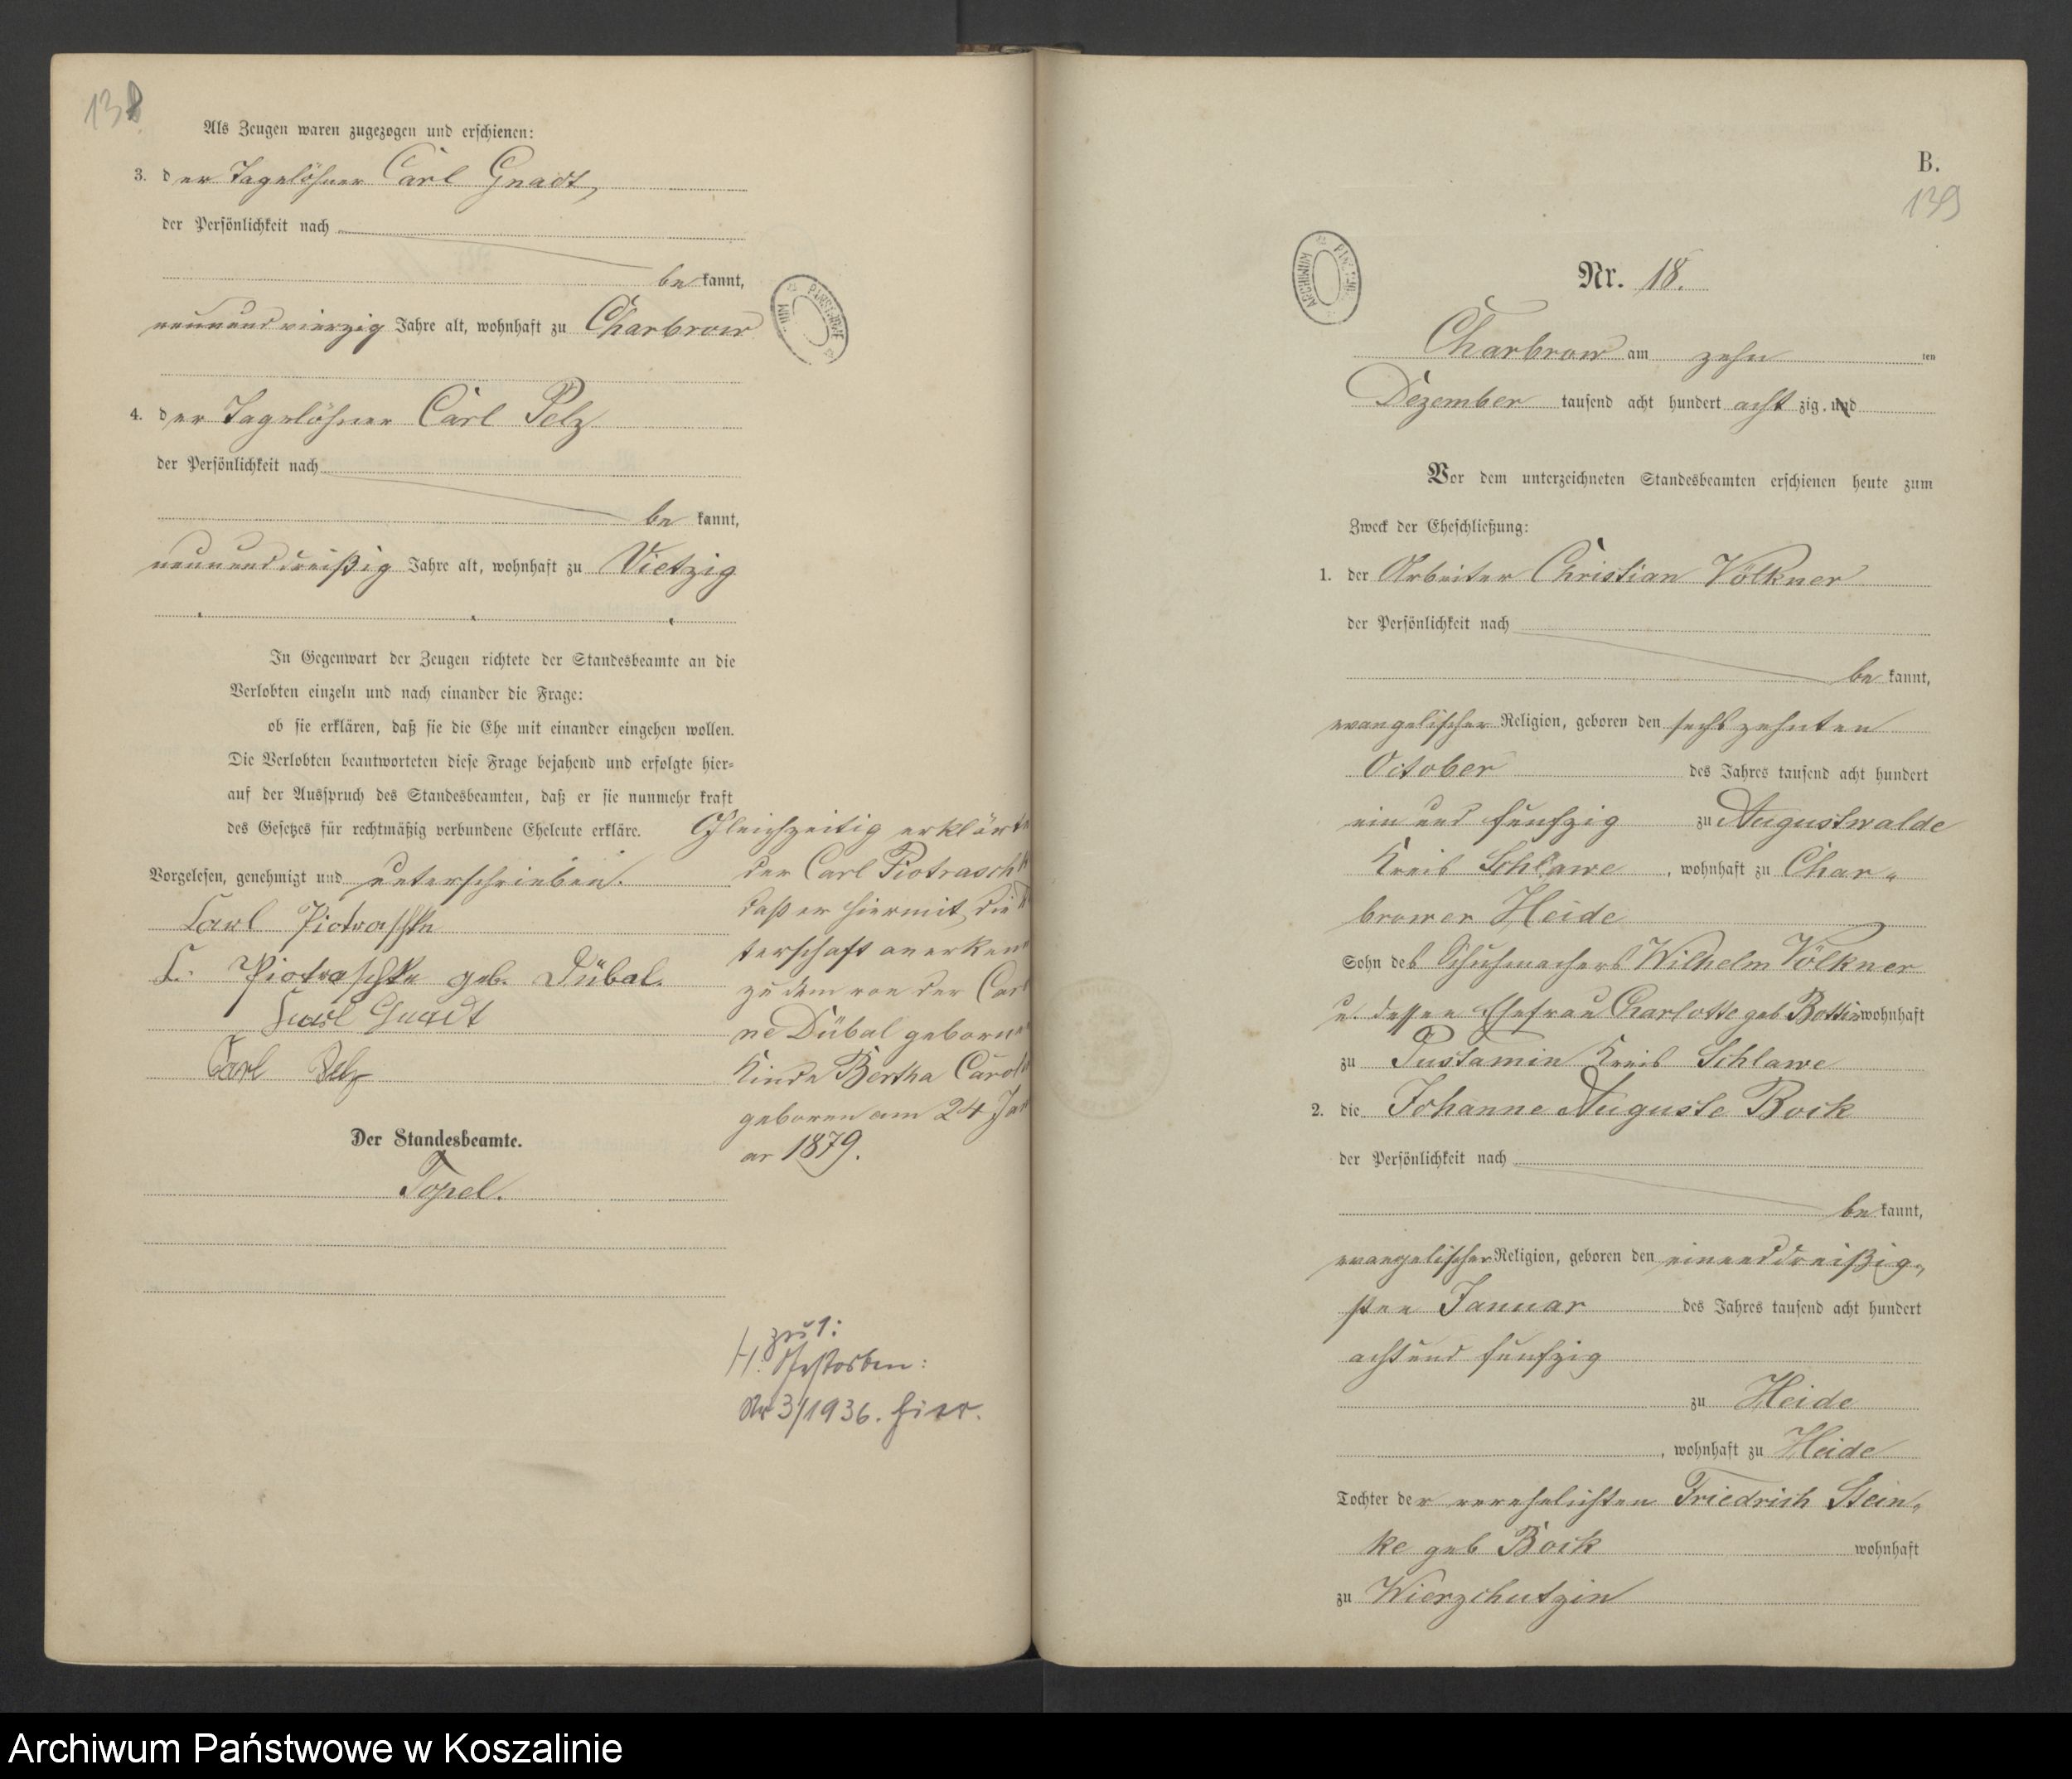 138
Als Zeugen waren zugezogen und erschienen:
3. der Tagelöhner Carl Gnadt,
der Persönlichkeit nach
be kannt,
neunundvierzig Jahre alt, wohnhaft zu Charbrow
4. der Tagelöhner Carl Pelz
der Persönlichkeit nach
be kannt,
neununddreißig Jahre alt, wohnhaft zu Vietzig
In Gegenwart der Zeugen richtete der Standesbeamte an die
Verlobten einzeln und nach einander die Frage:
ob sie erklären, daß sie die Ehe mit einander eingehen wollen.
Die Verlobten beantworteten diese Frage bejahend und erfolgte hier-
auf der Ausspruch des Standesbeamten, daß er sie nunmehr kraft
des Gesetzes für rechtmäßig verbundene Eheleute erkläre.
Vorgelesen, genehmigt und unterschrieben.
Carl Piotraschke
C. Piotraschke geb. Dübal.
Carl Gnadt
Carl Pelz
Der Standesbeamte.
Topel.
Gleichzeitig erklärte
der Carl Piotraschk
daß er hiermit die
terschaft anerken
zu dem von der Carl
ne Dübal geborne
Kinde Bertha Carol
geboren am 24 Jan
ar 1879.
zu 1:
H. Gestorben:
Nr 3/1936. hier.
B.
139
ARCHIWUM
Nr. 18.
Charbrow am zehn ten
Dezember tausend acht hundert acht zig. und
Vor dem unterzeichneten Standesbeamten erschienen heute zum
Zweck der Eheschließung:
1. der Arbeiter Christian Völkner
der Persönlichkeit nach
be kannt,
evangelischer Religion, geboren den sechszehnten
October des Jahres tausend acht hundert
ein und funfzig zu Augustwalde
Kreis Schlawe, wohnhaft zu Char-
brower Heide
Sohn des Schuhmachers Wilhelm Völkner
u. dessen Ehefrau Charlotte geb Bottin wohnhaft
zu Pustamin Kreis Schlawe
2. die Johanne Auguste Bock
der Persönlichkeit nach
be kannt,
evangelischer Religion, geboren den einunddreißig-
sten Januar des Jahres tausend acht hundert
achtund funfzig
zu Heide
, wohnhaft zu Heide
Tochter der verehelichten Friedrich Stein-
ke geb Bock wohnhaft
zu Wierzchutzin
Archiwum Państwowe w Koszalinie